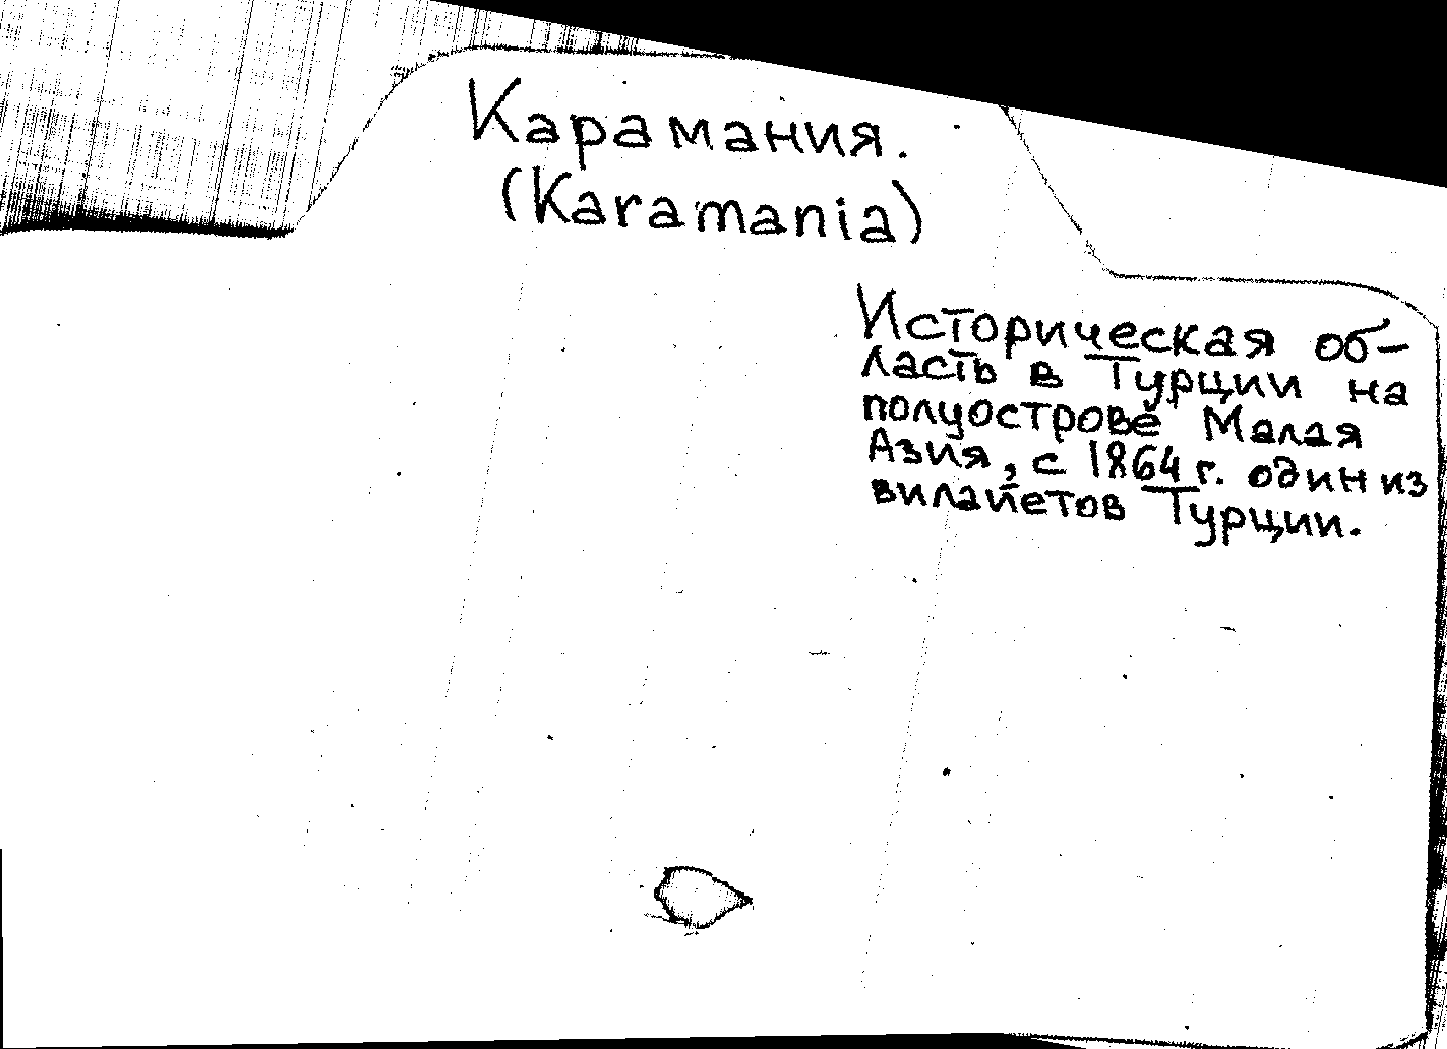 Карамания.
(Karamania)
Историческая об-
ласть в Турции на
полуострове Малая
Азия, с 1864 г. один из
вилайетов Турции.